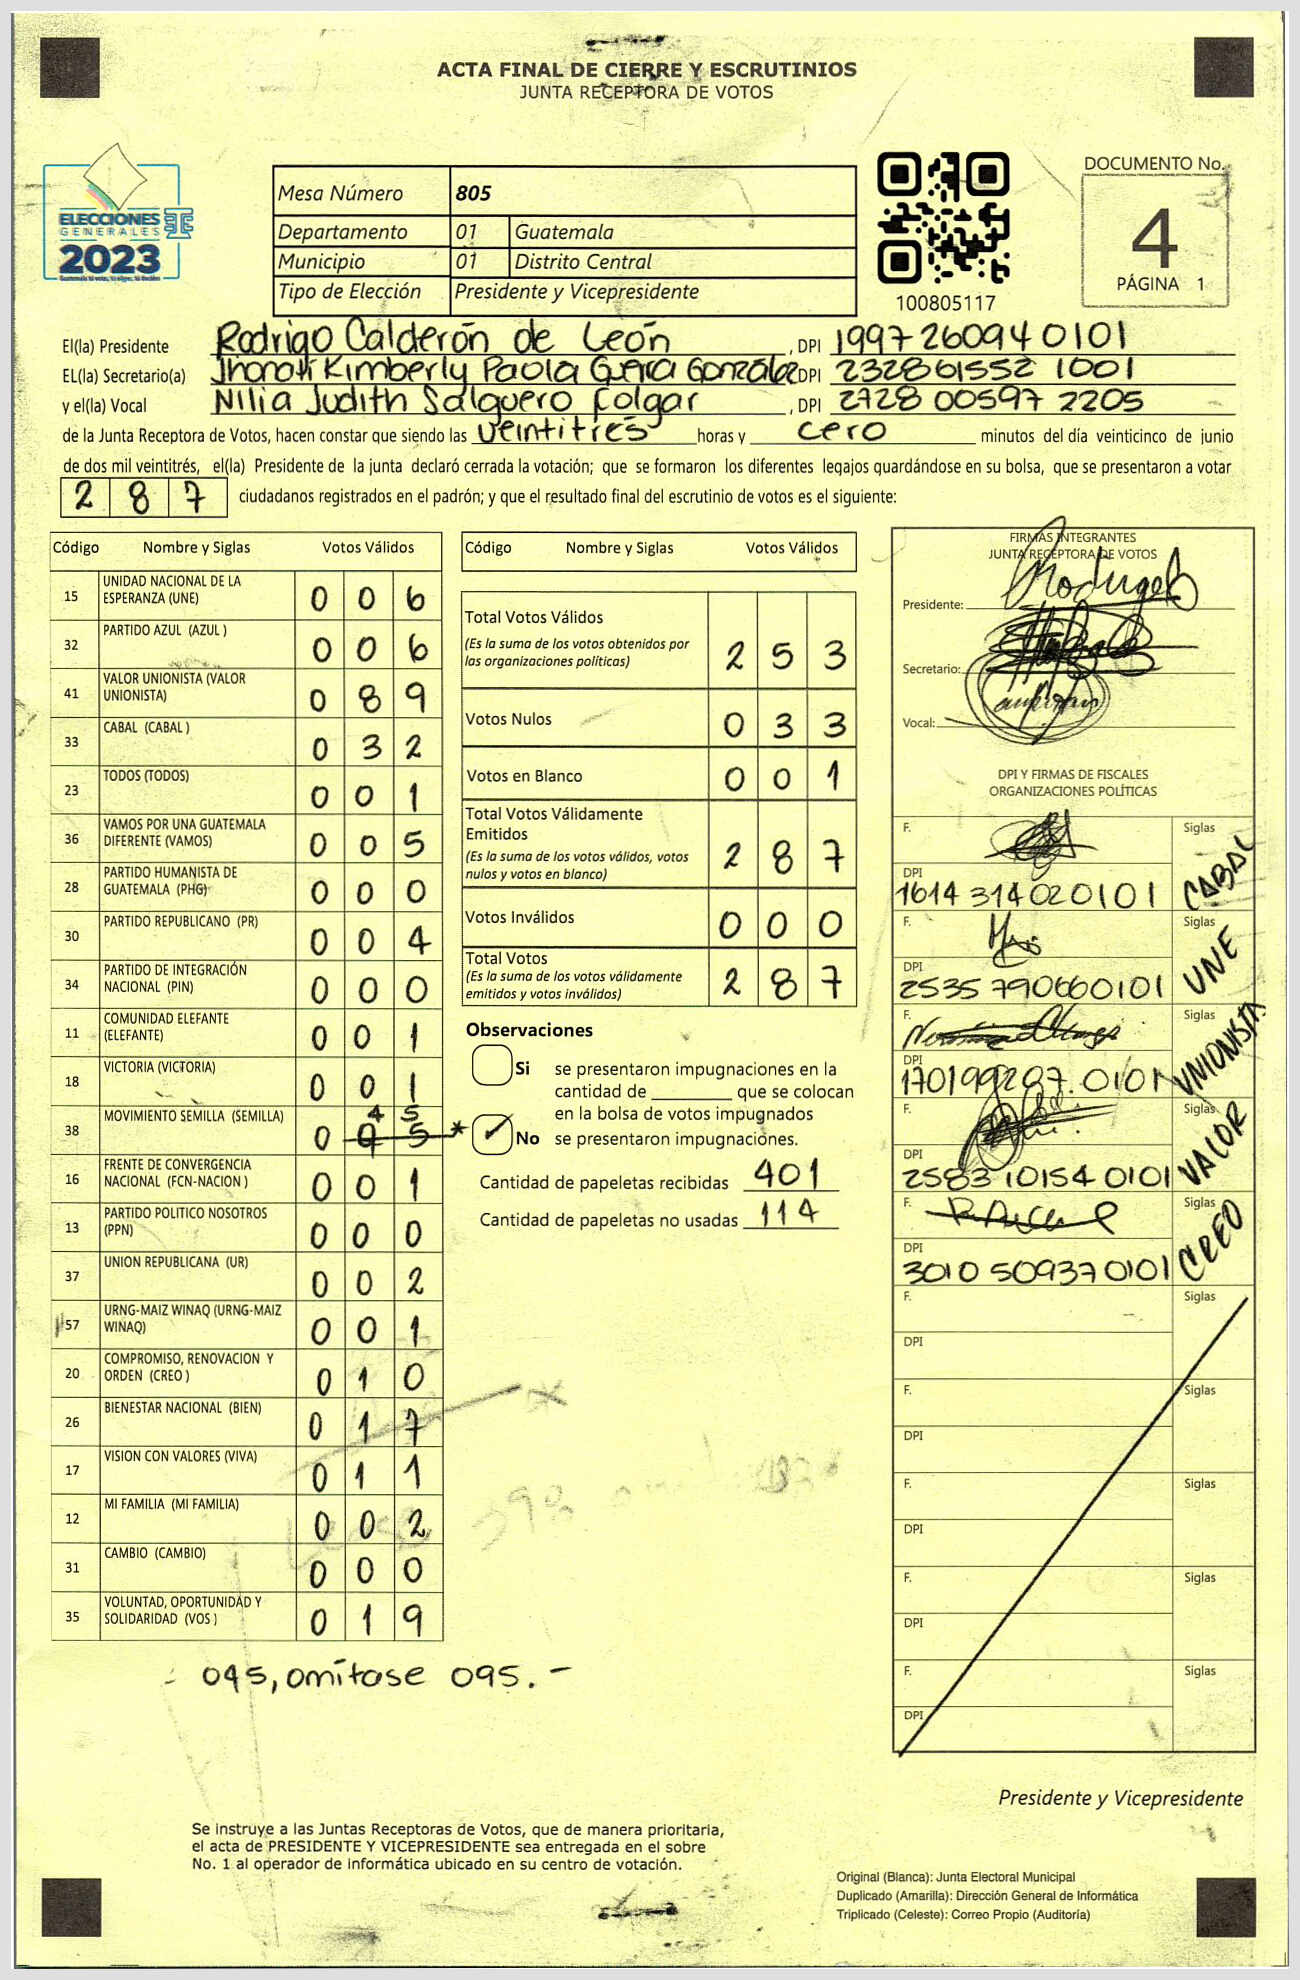 ACTA FINAL DE CIERRE Y ESCRUTINIOS
JUNTA RECEPTORA DE VOTOS
ELECCIONES
GENERALES
2023
Mesa Número 805
Departamento 01 Guatemala
Municipio 01 Distrito Central
Tipo de Elección Presidente y Vicepresidente
100805117
DOCUMENTO No.
4
PÁGINA 1
El(la) Presidente Rodrigo Calderón de León, DPI 1997 26094 0101
EL(la) Secretario(a) Kimberly Paola Guerra González DPI 232861552 1001
y el(la) Vocal Nilia Judith Salguero Folgar, DPI 2728 00597 2205
de la Junta Receptora de Votos, hacen constar que siendo las veintitrés horas y cero minutos del día veinticinco de junio
de dos mil veintitrés, el(la) Presidente de la junta declaró cerrada la votación; que se formaron los diferentes legajos guardándose en su bolsa, que se presentaron a votar
287 ciudadanos registrados en el padrón; y que el resultado final del escrutinio de votos es el siguiente:
Código Nombre y Siglas Votos Válidos
15 UNIDAD NACIONAL DE LA ESPERANZA (UNE) 0 0 6
32 PARTIDO AZUL (AZUL ) 0 0 6
41 VALOR UNIONISTA (VALOR UNIONISTA) 0 8 9
33 CABAL (CABAL ) 0 3 2
23 TODOS (TODOS) 0 0 1
36 VAMOS POR UNA GUATEMALA DIFERENTE (VAMOS) 0 0 5
28 PARTIDO HUMANISTA DE GUATEMALA (PHG) 0 0 0
30 PARTIDO REPUBLICANO (PR) 0 0 4
34 PARTIDO DE INTEGRACIÓN NACIONAL (PIN) 0 0 0
11 COMUNIDAD ELEFANTE (ELEFANTE) 0 0 1
18 VICTORIA (VICTORIA) 0 0 1
4 5
38 MOVIMIENTO SEMILLA (SEMILLA) 0 9 5 *
16 FRENTE DE CONVERGENCIA NACIONAL (FCN-NACION ) 0 0 1
13 PARTIDO POLITICO NOSOTROS (PPN) 0 0 0
37 UNION REPUBLICANA (UR) 0 0 2
57 URNG-MAIZ WINAQ (URNG-MAIZ WINAQ) 0 0 1
20 COMPROMISO, RENOVACION Y ORDEN (CREO ) 0 1 0
26 BIENESTAR NACIONAL (BIEN) 0 1 7
17 VISION CON VALORES (VIVA) 0 1 1
12 MI FAMILIA (MI FAMILIA) 0 0 2
31 CAMBIO (CAMBIO) 0 0 0
35 VOLUNTAD, OPORTUNIDAD Y SOLIDARIDAD (VOS ) 0 1 9
- 045, omítase 095. -
Código Nombre y Siglas Votos Válidos
Total Votos Válidos
(Es la suma de los votos obtenidos por
las organizaciones políticas) 2 5 3
Votos Nulos 0 3 3
Votos en Blanco 0 0 1
Total Votos Válidamente
Emitidos
(Es la suma de los votos válidos, votos
nulos y votos en blanco) 2 8 7
Votos Inválidos 0 0 0
Total Votos
(Es la suma de los votos válidamente
emitidos y votos inválidos) 2 8 7
Observaciones
Si se presentaron impugnaciones en la
cantidad de ________ que se colocan
en la bolsa de votos impugnados
No se presentaron impugnaciones.
Cantidad de papeletas recibidas 401
Cantidad de papeletas no usadas 114
FIRMAS INTEGRANTES
JUNTA RECEPTORA DE VOTOS
Presidente:
Secretario:
Vocal:
DPI Y FIRMAS DE FISCALES
ORGANIZACIONES POLÍTICAS
F. Siglas CABAL
DPI 1614 314020101
F. Siglas UNE
DPI 2535 790660101
F. Siglas UNIONISTA
DPI 170199207.0101
F. Siglas VALOR
DPI 2583 10154 0101
F. Siglas CREO
DPI 3010 509370101
F. Siglas
DPI
F. Siglas
DPI
F. Siglas
DPI
F. Siglas
DPI
F. Siglas
DPI
Presidente y Vicepresidente
Se instruye a las Juntas Receptoras de Votos, que de manera prioritaria,
el acta de PRESIDENTE Y VICEPRESIDENTE sea entregada en el sobre
No. 1 al operador de informática ubicado en su centro de votación.
Original (Blanca): Junta Electoral Municipal
Duplicado (Amarilla): Dirección General de Informática
Triplicado (Celeste): Correo Propio (Auditoría)